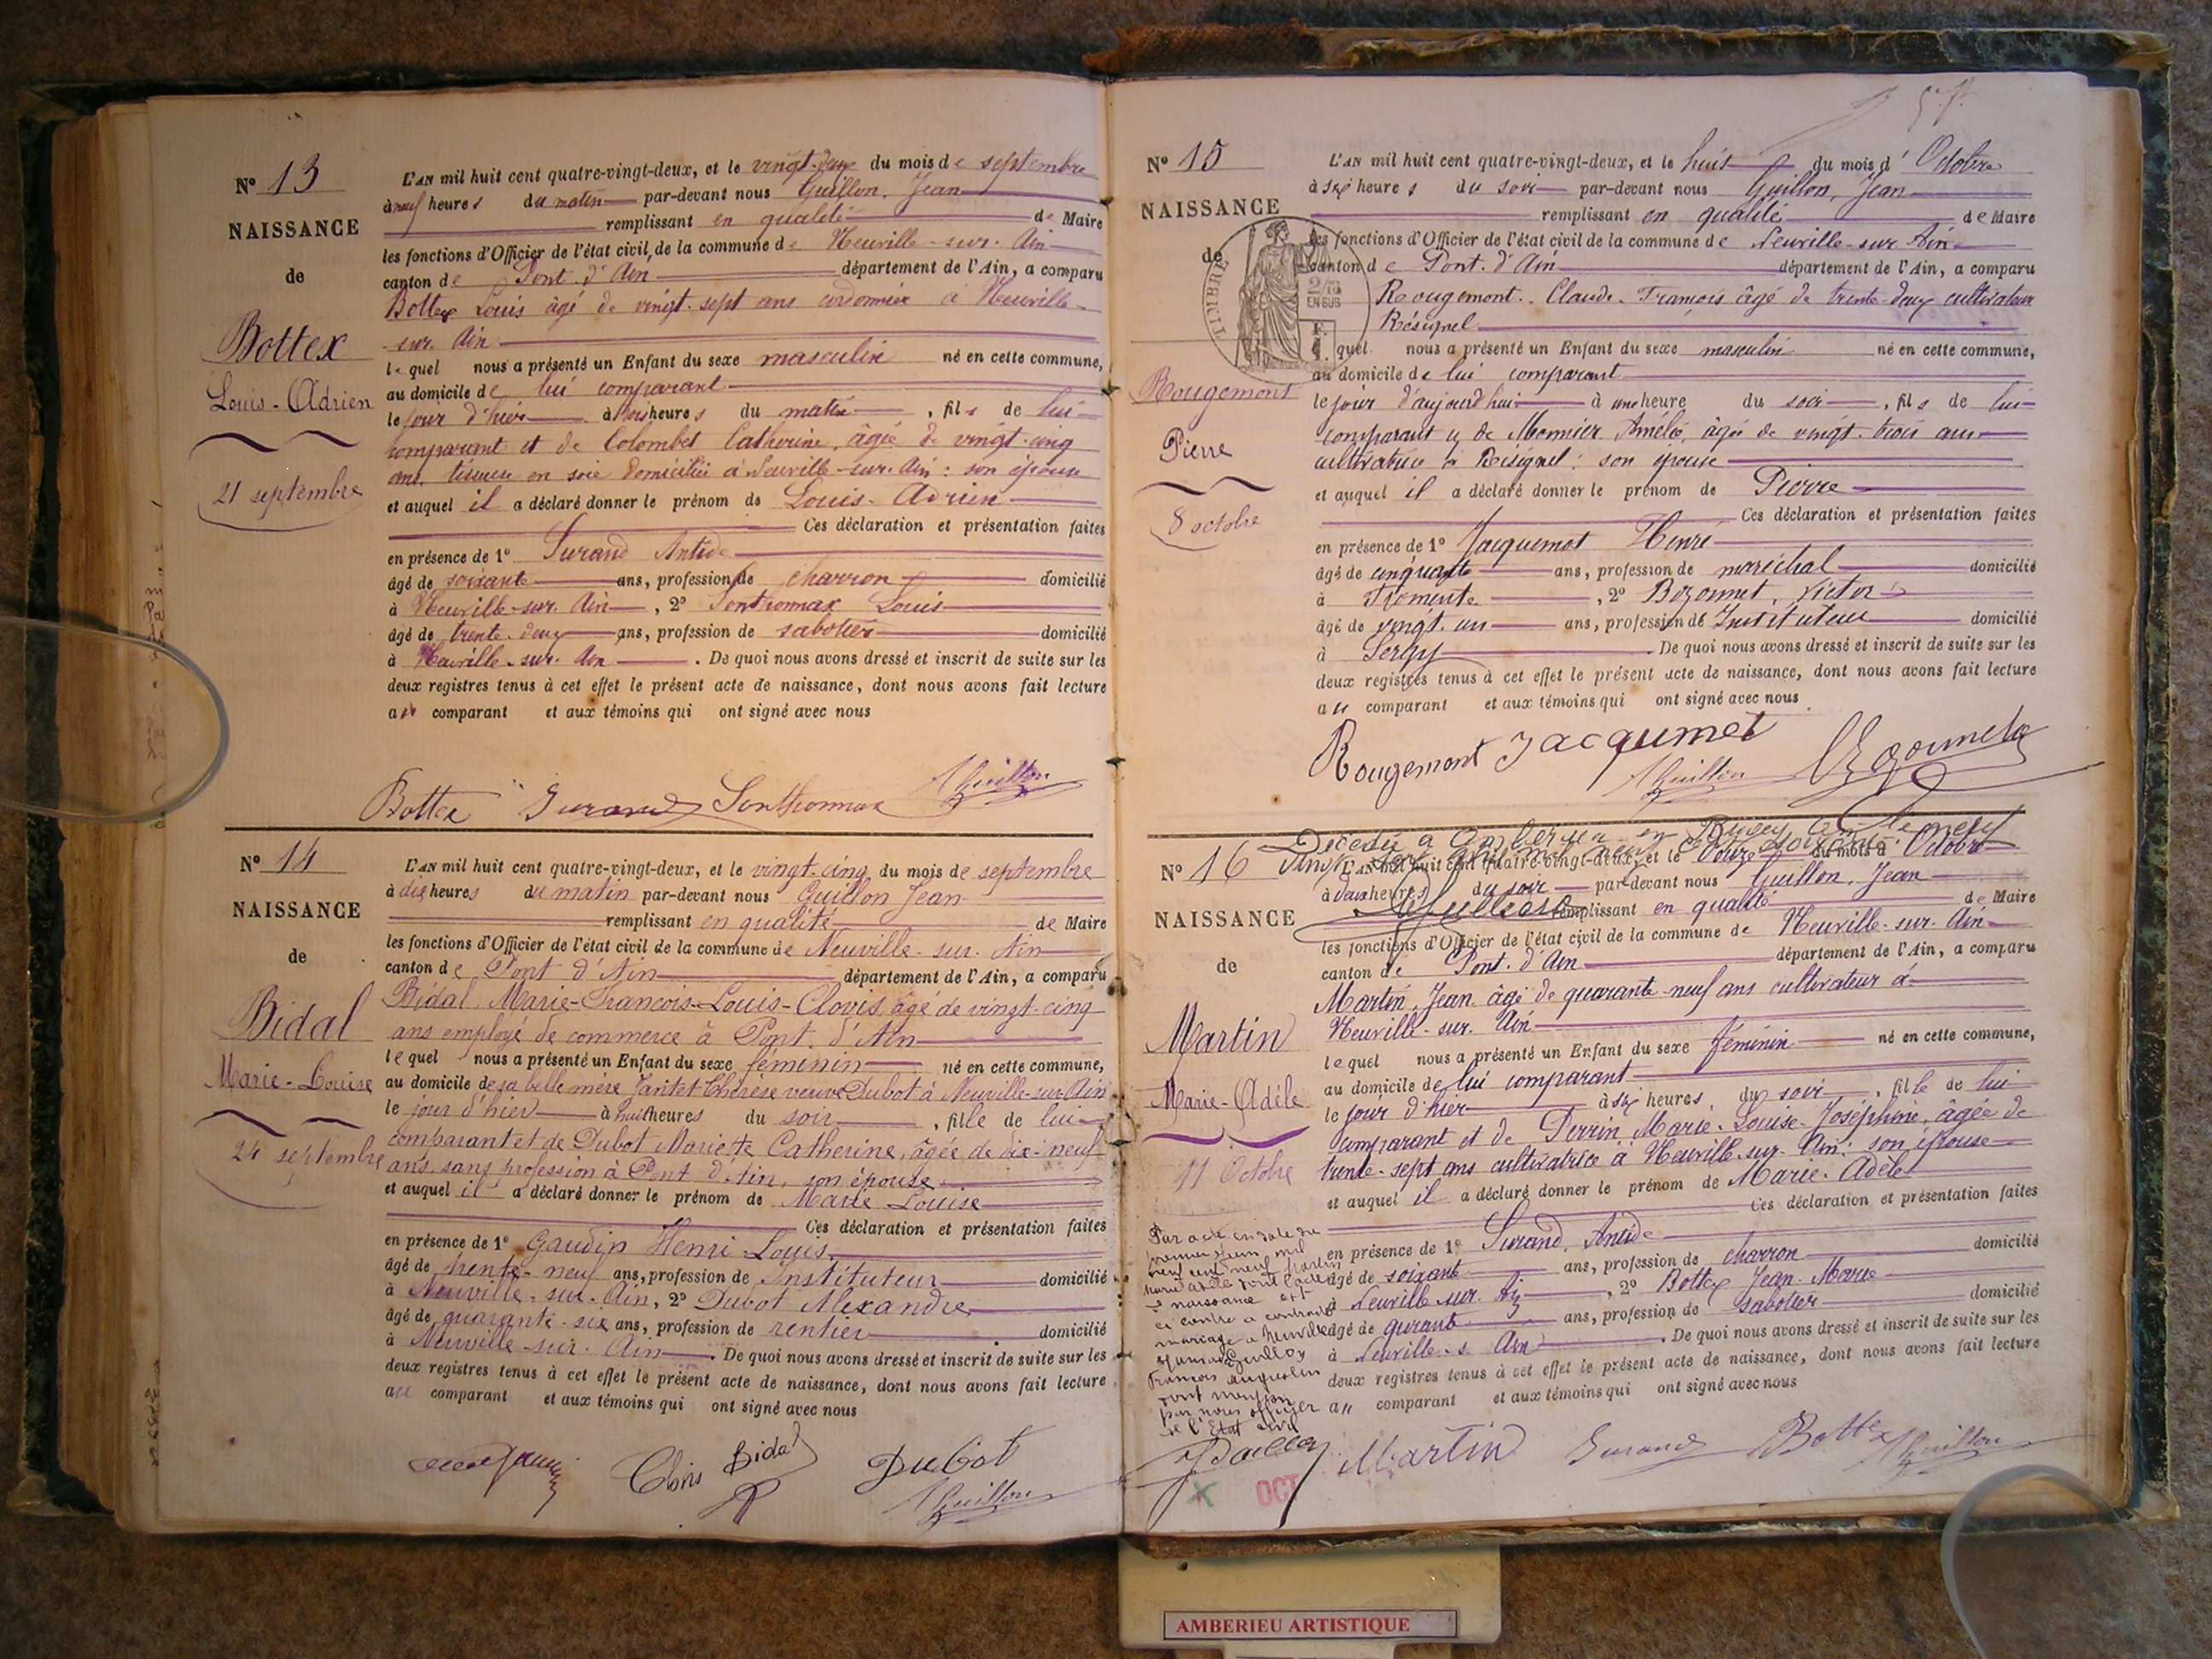 N° 13
NAISSANCE
de
Bottex
Louis-Adrien
21 septembre
L'AN mil huit cent quatre-vingt-deux, et le vingt-deux du mois de septembre
à neuf heures du matin par-devant nous Guillon, Jean
remplissant en qualité de Maire
les fonctions d'Officier de l'état civil, de la commune de Neuville-sur-Ain
canton de Pont-d'Ain département de l'Ain, a comparu
Bottex Louis âgé de vingt-sept ans cordonnier à Neuville-
sur-Ain
lequel nous a présenté un Enfant du sexe masculin né en cette commune,
au domicile de lui comparant
le jour d'hier à heures du matin, fils de lui
comparant et de Colombet Catherine, âgée de vingt-cinq
ans, tisseuse en soie domiciliée à Neuville-sur-Ain: son épouse
et auquel il a déclaré donner le prénom de Louis-Adrien
Ces déclaration et présentation faites
en présence de 1° Durand Antide
âgé de soixante ans, profession de charron domicilié
à Neuville-sur-Ain, 2° Sonthonnax Louis
âgé de trente-deux ans, profession de sabotier domicilié
à Neuville-sur-Ain. De quoi nous avons dressé et inscrit de suite sur les
deux registres tenus à cet effet le présent acte de naissance, dont nous avons fait lecture
au comparant et aux témoins qui ont signé avec nous
Bottex Durand Sonthonnax Guillon
N° 14
NAISSANCE
de
Bidal
Marie-Louise
24 septembre
L'AN mil huit cent quatre-vingt-deux, et le vingt-cinq du mois de septembre
à dix heures du matin par-devant nous Guillon Jean
remplissant en qualité de Maire
les fonctions d'Officier de l'état civil de la commune de Neuville-sur-Ain
canton de Pont d'Ain département de l'Ain, a comparu
Bidal, Marie-François-Louis-Clovis, âgé de vingt-cinq
ans employé de commerce à Pont-d'Ain
lequel nous a présenté un Enfant du sexe féminin né en cette commune,
au domicile de sa belle mère Jantet Thérèse veuve Dubot à Neuville-sur-Ain
le jour d'hier à huit heures du soir, fille de lui
comparant et de Dubot Mariette Catherine, âgée de dix-neuf
ans, sans profession à Pont d'Ain, son épouse
et auquel il a déclaré donner le prénom de Marie Louise
Ces déclaration et présentation faites
en présence de 1° Gaudin Henri Louis
âgé de trente-neuf ans, profession de Instituteur domicilié
à Neuville-sur-Ain, 2° Dubot Alexandre
âgé de quarante-six ans, profession de rentier domicilié
à Neuville-sur-Ain. De quoi nous avons dressé et inscrit de suite sur les
deux registres tenus à cet effet le présent acte de naissance, dont nous avons fait lecture
au comparant et aux témoins qui ont signé avec nous
Clovis Bidal Dubot
Guillon
N° 15
NAISSANCE
de
Rougemont
Pierre
8 octobre
TIMBRE
EN SUS
L'AN mil huit cent quatre-vingt-deux, et le huit du mois d'Octobre
à six heures du soir par-devant nous Guillon, Jean
remplissant en qualité de Maire
les fonctions d'Officier de l'état civil de la commune de Neuville-sur-Ain
canton de Pont-d'Ain département de l'Ain, a comparu
Rougemont Claude-François âgé de trente-deux cultivateur
Résignel
quel nous a présenté un Enfant du sexe masculin né en cette commune,
au domicile de lui comparant
le jour d'aujourd'hui à une heure du soir, fils de lui
comparant et de Monnier Amélie, âgée de vingt-trois ans
cultivatrice à Résignel: son épouse
et auquel il a déclaré donner le prénom de Pierre
Ces déclaration et présentation faites
en présence de 1° Jacquemet Henri
âgé de cinquante ans, profession de maréchal domicilié
à Fromente, 2° Bozonnet, Victor
âgé de vingt-un ans, profession de Instituteur domicilié
à Sergy. De quoi nous avons dressé et inscrit de suite sur les
deux registres tenus à cet effet le présent acte de naissance, dont nous avons fait lecture
au comparant et aux témoins qui ont signé avec nous
Rougemont Jacqumet
Guillon Bozonnet
Décédée à Ambérieu en Bugey le neuf
N° 16
NAISSANCE
de
Martin
Marie-Adèle
11 Octobre
L'AN mil huit cent quatre-vingt-deux, et le douze du mois d'Octobre
à deux heures du soir par-devant nous Guillon, Jean
remplissant en qualité de Maire
les fonctions d'Officier de l'état civil de la commune de Neuville-sur-Ain
canton de Pont-d'Ain département de l'Ain, a comparu
Martin, Jean âgé de quarante-neuf ans cultivateur à
Neuville-sur-Ain
lequel nous a présenté un Enfant du sexe féminin né en cette commune,
au domicile de lui comparant
le jour d'hier à six heures du soir, fille de lui
comparant et de Perrin Marie-Louise-Joséphine, âgée de
trente-sept ans cultivatrice à Neuville-sur-Ain: son épouse
et auquel il a déclaré donner le prénom de Marie-Adèle
Ces déclaration et présentation faites
en présence de 1° Durand, Antide
âgé de soixante ans, profession de charron domicilié
à Neuville-sur-Ain, 2° Bottex Jean-Marie
âgé de qurante ans, profession de sabotier domicilié
à Neuville-s-Ain. De quoi nous avons dressé et inscrit de suite sur les
deux registres tenus à cet effet le présent acte de naissance, dont nous avons fait lecture
au comparant et aux témoins qui ont signé avec nous
Par acte en date du
premier juin mil
neuf cent neuf Martin
Marie Adèle dont l'acte
de naissance est
ci contre a contracté
mariage à Neuville
François Augustin
dont mention
par nous officier
de l'Etat civil
Martin Durand Bottex Guillon
OCT
AMBERIEU ARTISTIQUE